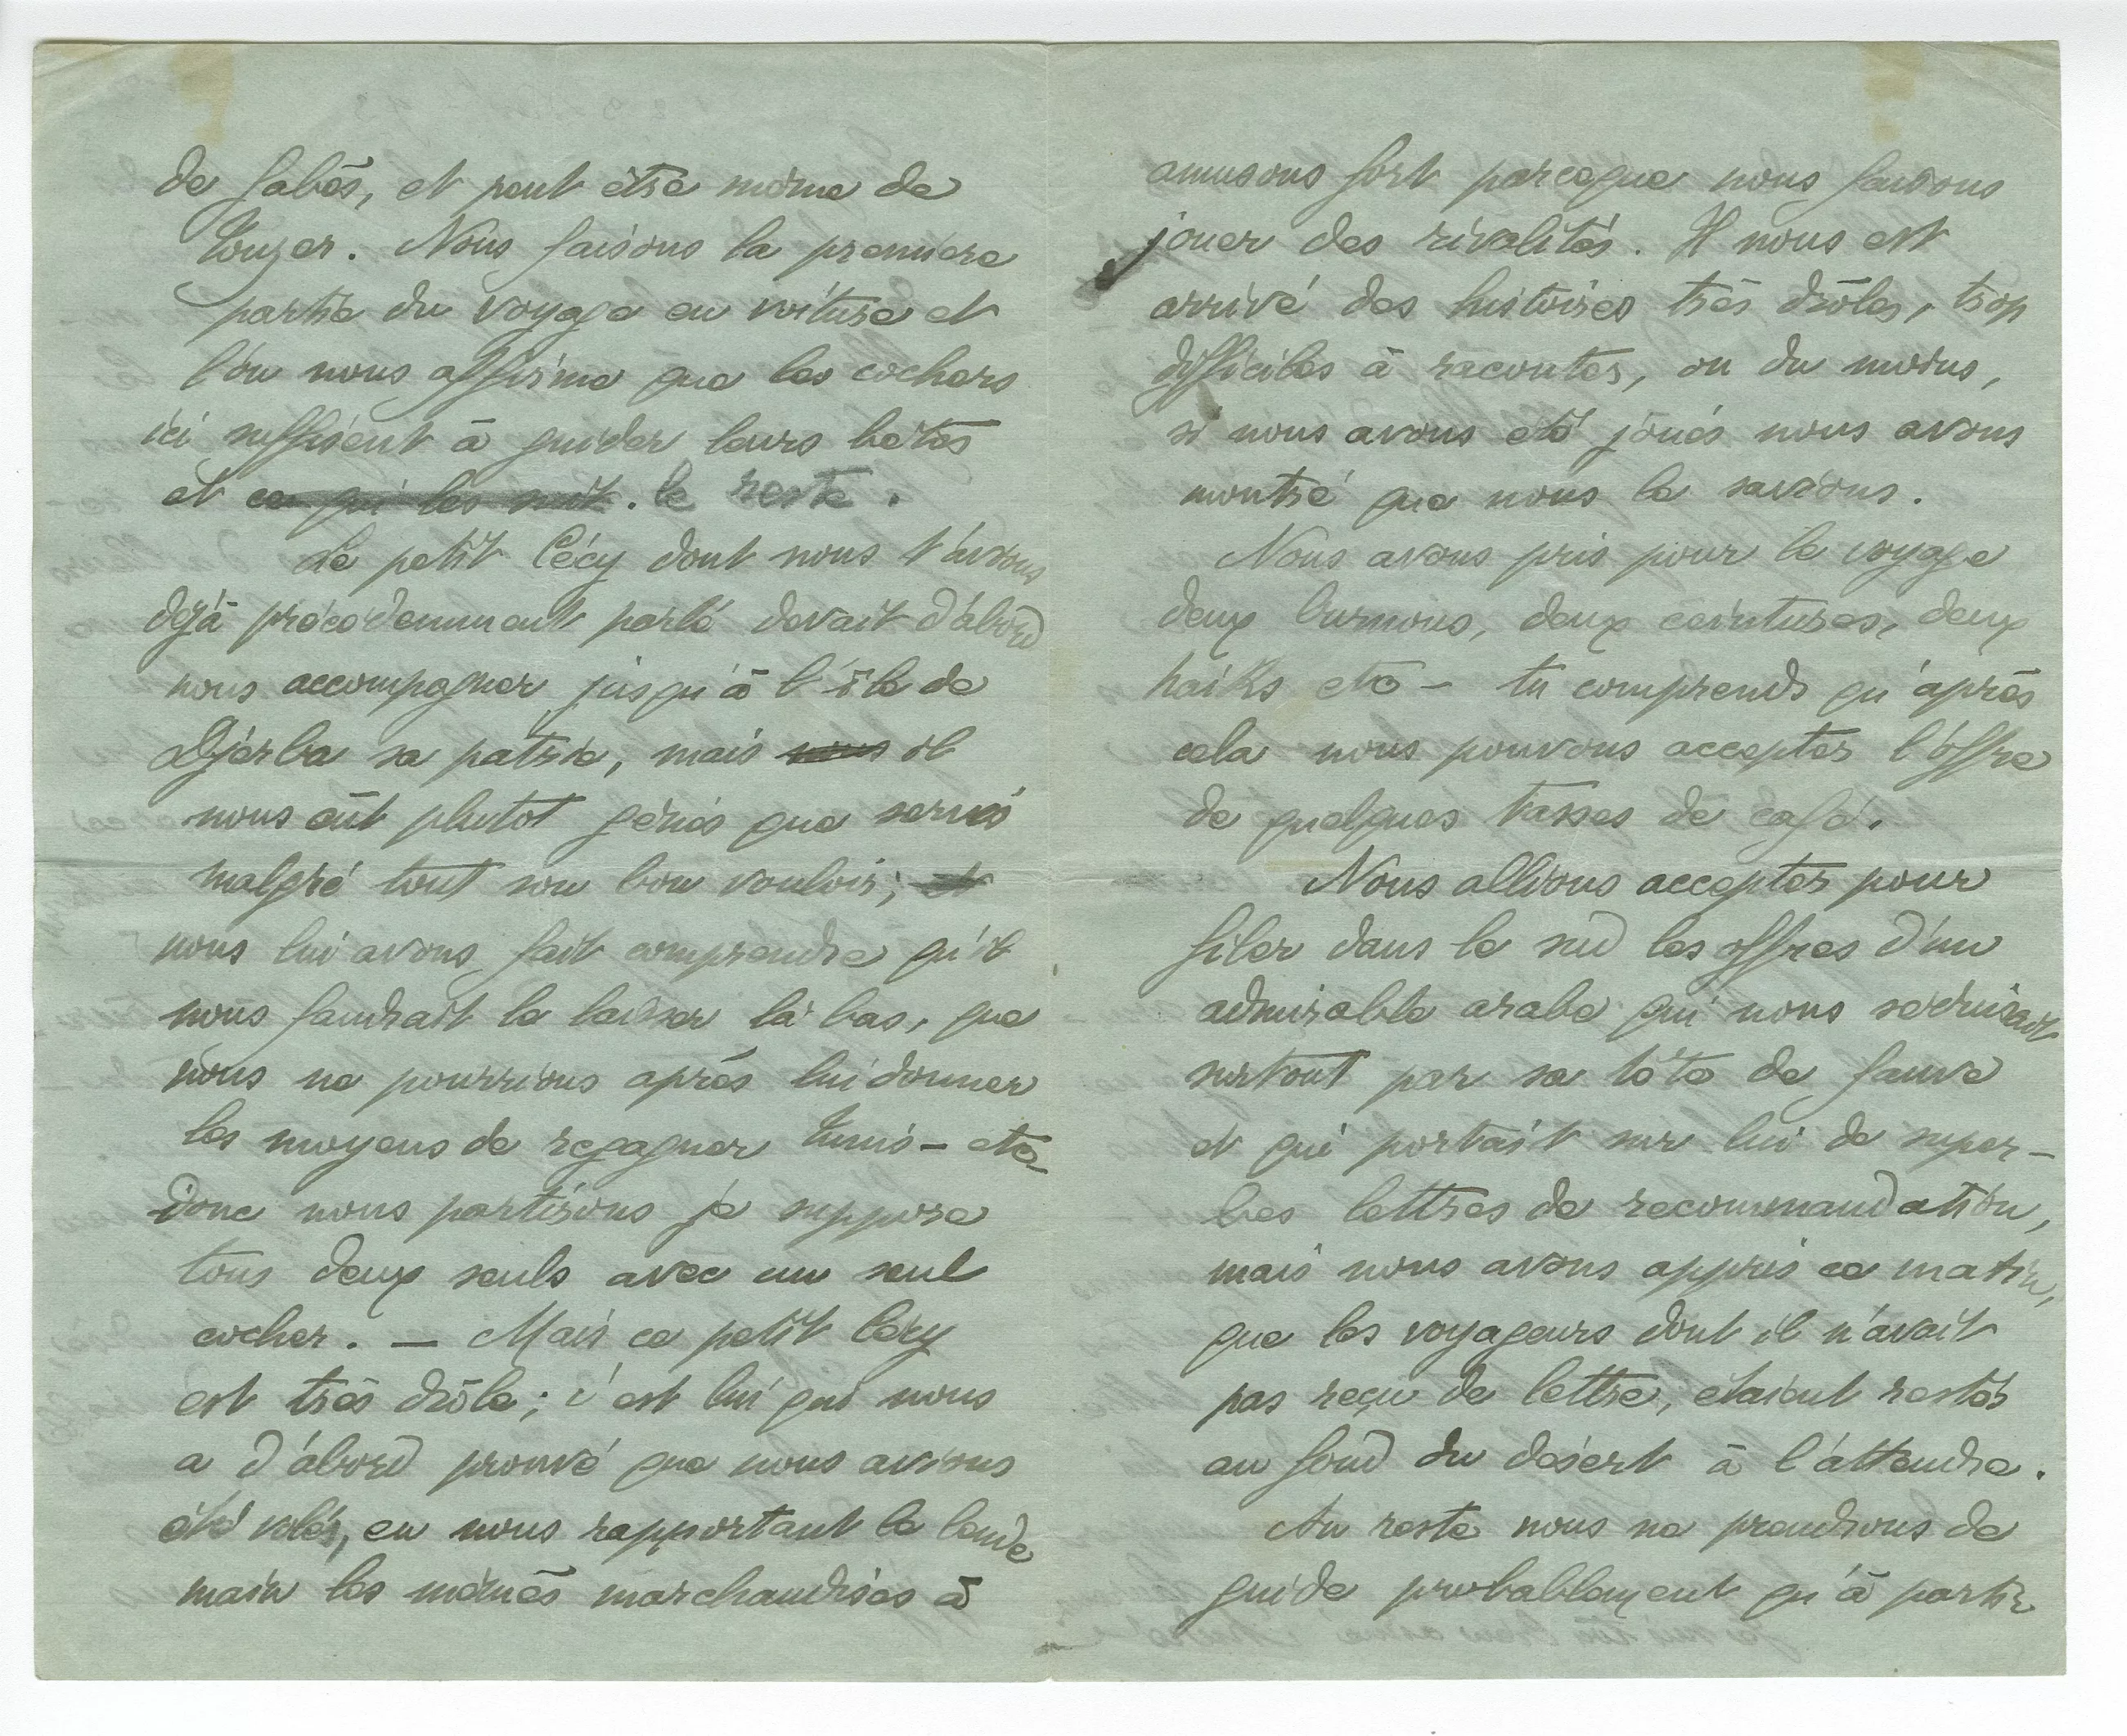 de Gabès, et peut être même de
Touzer. Nous faisons la première
partie du voyage en voiture et
l'on nous affirme que les cochers
ici suffisent à guider leurs bêtes
et ce qui les suit. le reste.
Le petit Cécy dont nous t'avons
déjà précédemment parlé devait d'abord
nous accompagner jusqu'à l'île de
Djerba sa patrie, mais nous il
nous eût plutot gênés que servis
malgré tout son bon vouloir; et
nous lui avons fait comprendre qu'il
nous faudrait le laisser là bas, que
nous ne pourrions après lui donner
les moyens de regagner Tunis – etc –
Donc nous partirons je suppose
tous deux seuls avec un seul
cocher. — Mais ce petit Cécy
est très drôle; c'est lui qui nous
a d'abord prouvé que nous avions
été volés, en nous rapportant le lende
main les mêmes marchandises à
amusons fort parceque nous faisons
jouer des rivalités. Il nous est
arrivé des histoires très drôles, trop
difficiles à raconter, ou du moins,
si nous avons été joués nous avons
montré que nous le savions.
Nous avons pris pour le voyage
deux burnous, deux ceintures, deux
haïks etc – tu comprends qu'après
cela nous pouvons accepter l'offre
de quelques tasses de café.
Nous allions accepter pour
filer dans le sud les offres d'un
admirable arabe qui nous séduisait
surtout par sa tête de fauve
et qui portait sur lui de super–
bes lettres de recommandation,
mais nous avons appris ce matin,
que les voyageurs dont il n'avait
pas reçu de lettre, étaient restés
au fond du désert à l'attendre.
Au reste nous ne prendrons de
guide probablement qu'à partir